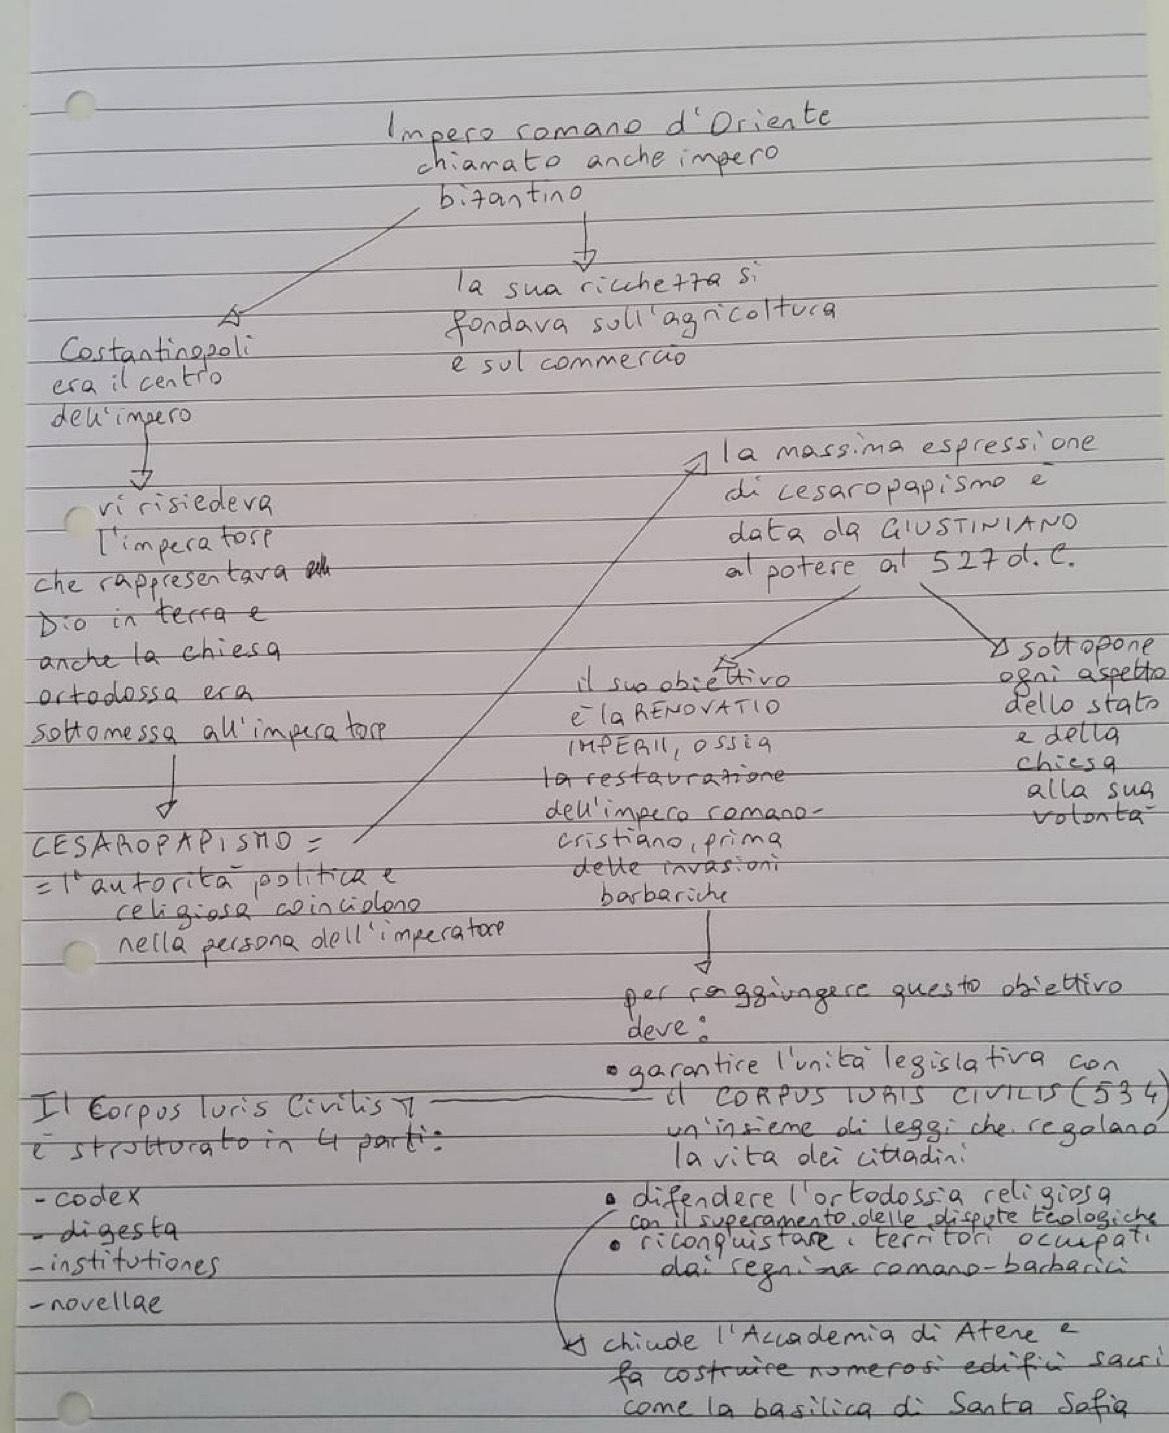 Impero romano d'Oriente
chiamato anche impero
bizantino
la sua ricchezza si
fondava sull'agricoltura
e sul commercio
Costantinopoli
era il centro
dell'impero
vi risiedeva
l'imperatore
che rappresentava
Dio in terra e
anche la chiesa
ortodossa era
sottomessa all'imperatore
CESAROPAPISMO =
= l'autorità politica e
religiosa coincidono
nella persona dell'imperatore
la massima espressione
di cesaropapismo è
data da GIUSTINIANO
al potere al 527 d.C.
il suo obiettivo
è la RENOVATIO
IMPERII, ossia
la restaurazione
dell'impero romano-
cristiano, prima
delle invasioni
barbariche
sottopone
ogni aspetto
dello stato
e della
chiesa
alla sua
volontà
per raggiungere questo obiettivo
deve:
• garantire l'unità legislativa con
il CORPUS IURIS CIVILIS (534)
un'insieme di leggi che regolano
la vita dei cittadini
• difendere l'ortodossia religiosa
con il superamento delle dispute teologiche
• riconquistare i territori occupati
dai regni romano-barbarici
chiude l'Accademia di Atene e
fa costruire numerosi edifici sacri
come la basilica di Santa Sofia
Il Corpus Iuris Civilis
è strutturato in 4 parti:
- codex
- digesta
- institutiones
- novellae